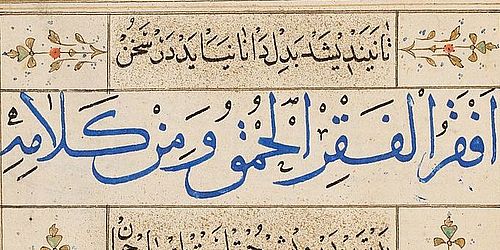 تا نیندیشد بدل دانا نیاید در سخن
اَفْقَرُ الْفَقْرِ الْحُمْقُ وَمِنْ كَلَامِهِ